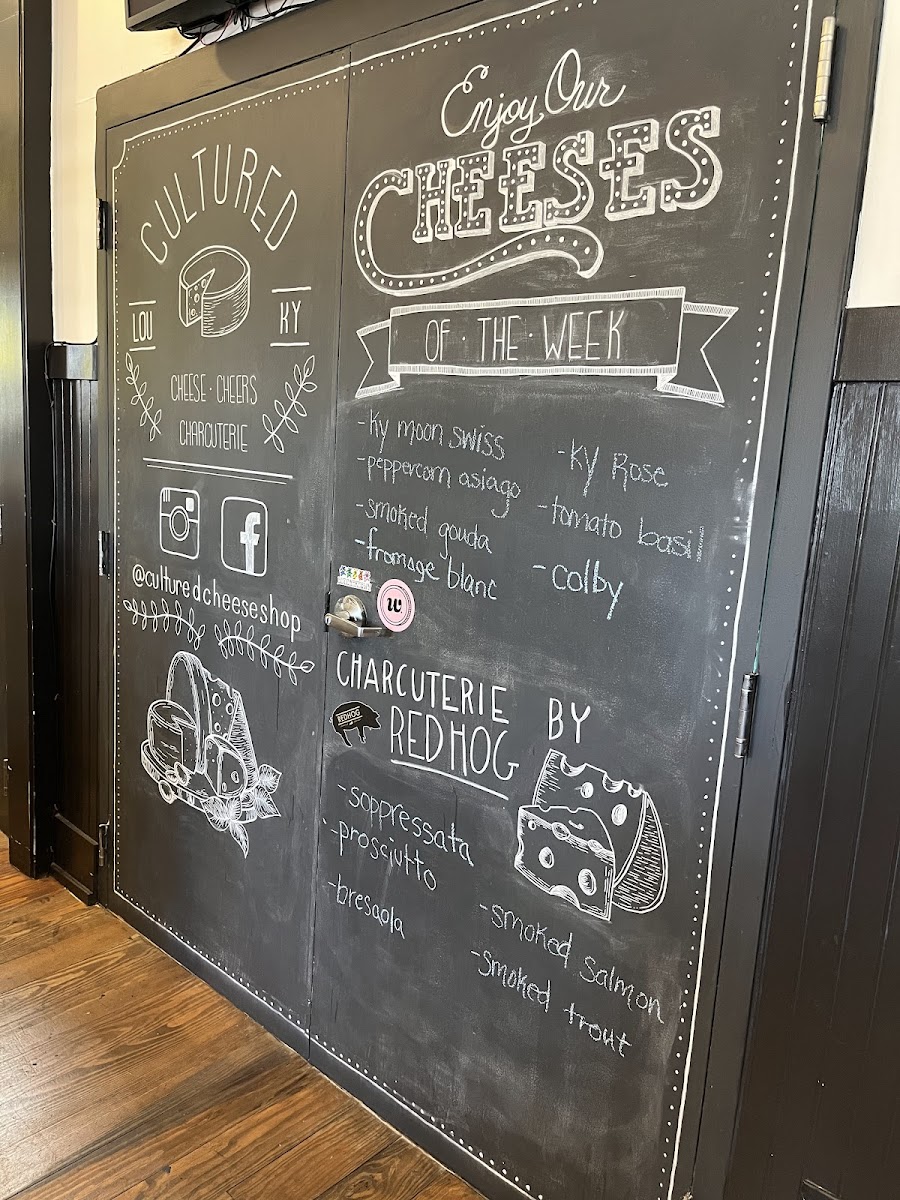 CULTURED
LOU KY
CHEESE · CHEERS
CHARCUTERIE
@culturedcheeseshop
Enjoy Our
CHEESES
OF · THE · WEEK
-Ky moon swiss
-peppercorn asiago
-smoked gouda
-fromage blanc
-KY Rose
-tomato basil
-colby
w
CHARCUTERIE BY
REDHOG
REDHOG
-soppressata
-prosciutto
-bresaola
-smoked salmon
-smoked trout